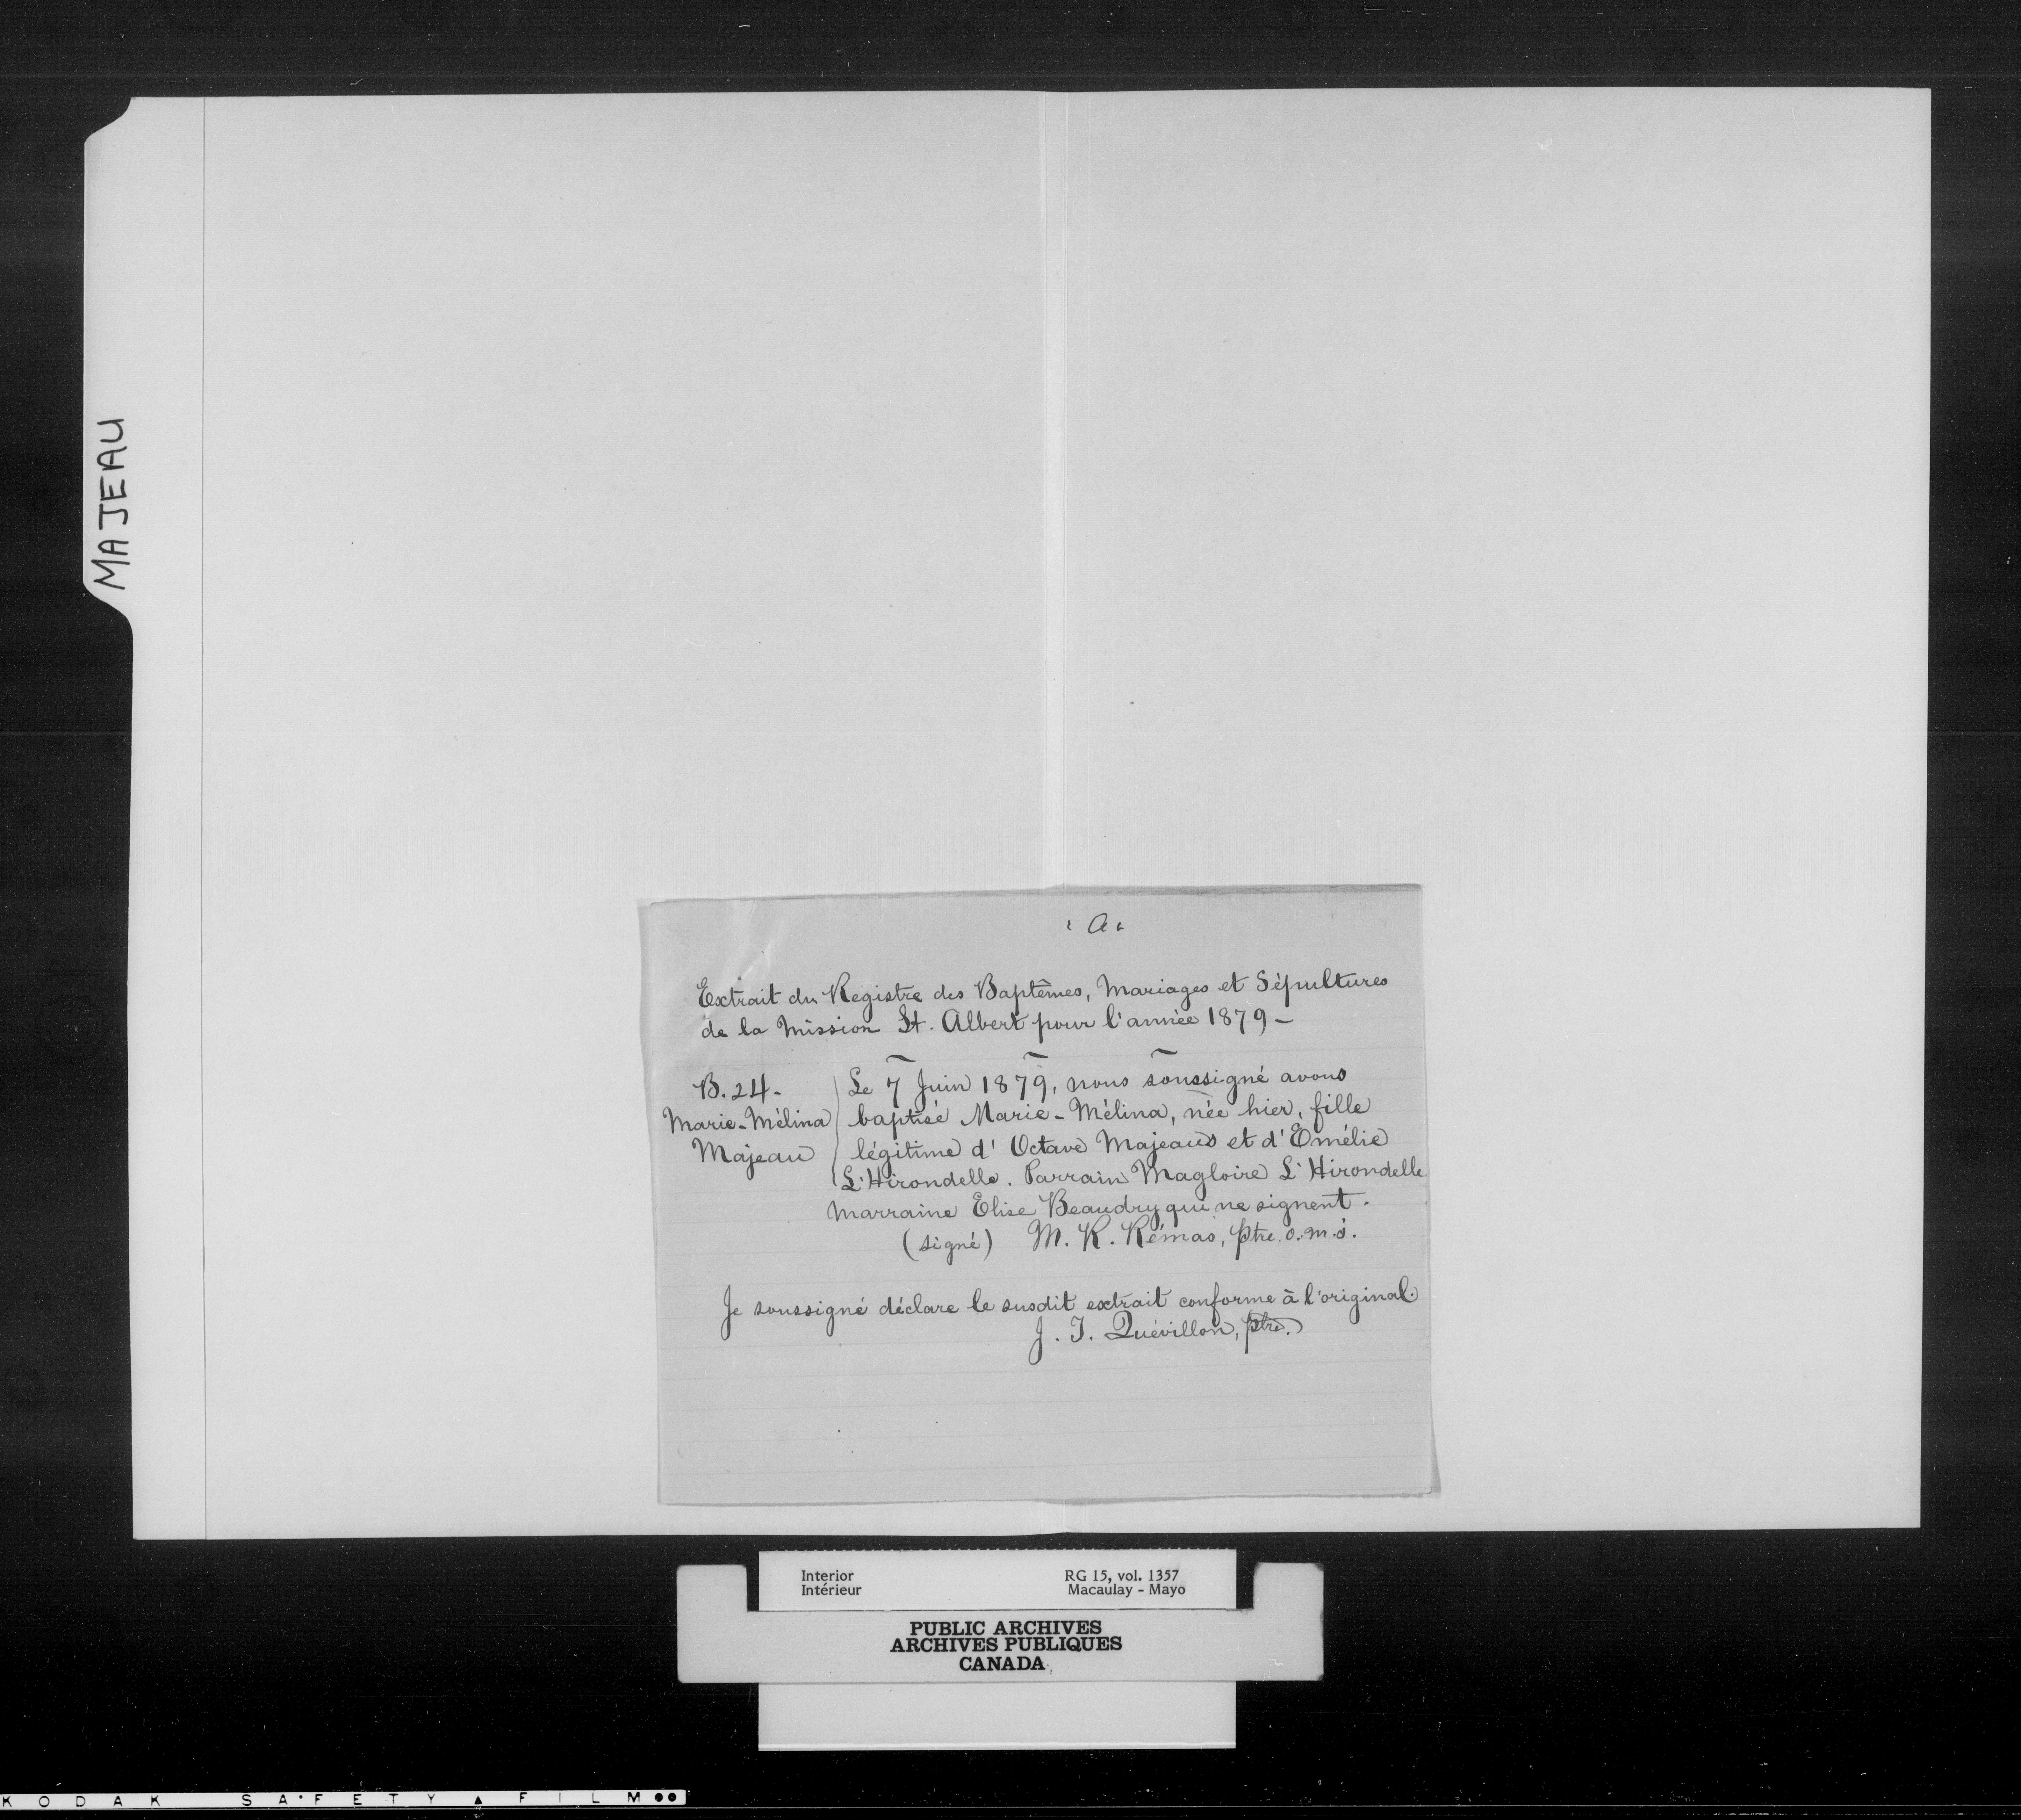 MAJEAU
"A"
Extrait du Registre des Baptêmes, Mariages et Sépultures
de la Mission St. Albert pour l'année 1879 -
B. 24 -
Marie-Mélina
Majeau
Le 7 Juin 1879, nous soussigné avons
baptisé Marie-Mélina, née hier, fille
légitime d'Octave Majeau et d'Emélie
L'Hirondelle. Parrain Magloire L'Hirondelle
Marraine Elise Beaudry qui ne signent.
(signé) M. R. Rémas, ptre. o.m.i.
Je soussigné déclare le susdit extrait conforme à l'original.
J. I. Quévillon, ptre.
Interior RG 15, vol. 1357
Intérieur Macaulay - Mayo
PUBLIC ARCHIVES
ARCHIVES PUBLIQUES
CANADA
KODAK SAFETY FILM